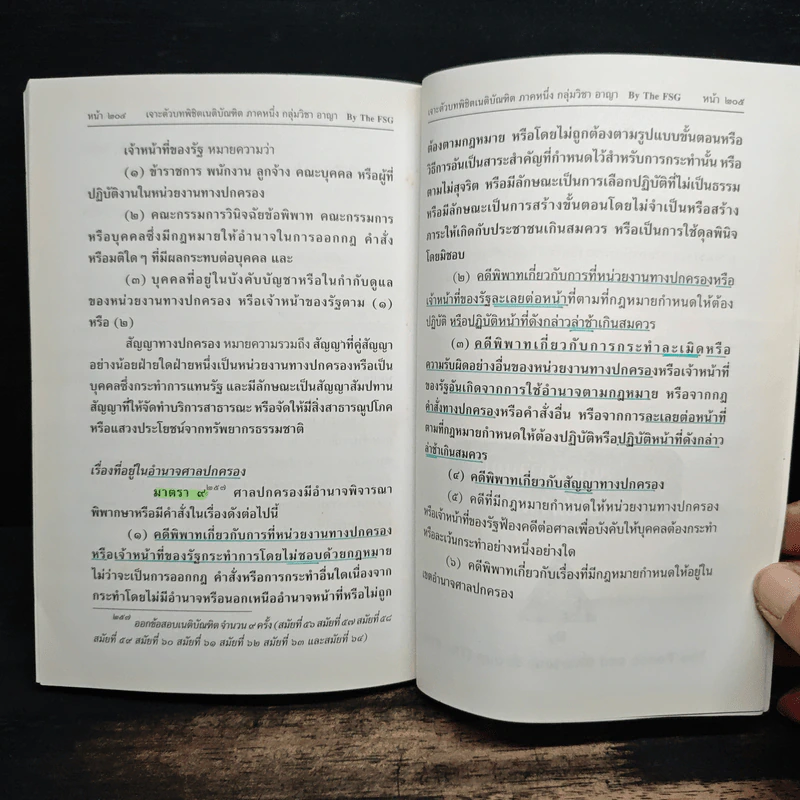 หน้า ๒๐๔ เจาะตัวบทพิชิตเนติบัณฑิต ภาคหนึ่ง กลุ่มวิชา อาญา By The FSG
เจ้าหน้าที่ของรัฐ หมายความว่า
(๑) ข้าราชการ พนักงาน ลูกจ้าง คณะบุคคล หรือผู้ที่
ปฏิบัติงานในหน่วยงานทางปกครอง
(๒) คณะกรรมการวินิจฉัยข้อพิพาท คณะกรรมการ
หรือบุคคลซึ่งมีกฎหมายให้อำนาจในการออกกฎ คำสั่ง
หรือมติใดๆ ที่มีผลกระทบต่อบุคคล และ
(๓) บุคคลที่อยู่ในบังคับบัญชาหรือในกำกับดูแล
ของหน่วยงานทางปกครอง หรือเจ้าหน้าของรัฐตาม (๑)
หรือ (๒)
สัญญาทางปกครอง หมายความรวมถึง สัญญาที่คู่สัญญา
อย่างน้อยฝ่ายใดฝ่ายหนึ่งเป็นหน่วยงานทางปกครองหรือเป็น
บุคคลซึ่งกระทำการแทนรัฐ และมีลักษณะเป็นสัญญาสัมปทาน
สัญญาที่ให้จัดทำบริการสาธารณะ หรือจัดให้มีสิ่งสาธารณูปโภค
หรือแสวงประโยชน์จากทรัพยากรธรรมชาติ
เรื่องที่อยู่ในอำนาจศาลปกครอง
มาตรา ๙²⁵⁷ ศาลปกครองมีอำนาจพิจารณา
พิพากษาหรือมีคำสั่งในเรื่องดังต่อไปนี้
(๑) คดีพิพาทเกี่ยวกับการที่หน่วยงานทางปกครอง
หรือเจ้าหน้าที่ของรัฐกระทำการโดยไม่ชอบด้วยกฎหมาย
ไม่ว่าจะเป็นการออกกฎ คำสั่งหรือการกระทำอื่นใดเนื่องจาก
กระทำโดยไม่มีอำนาจหรือนอกเหนืออำนาจหน้าที่หรือไม่ถูก
๒๕๗ ออกข้อสอบเนติบัณฑิต จำนวน ๙ ครั้ง (สมัยที่ ๕๖ สมัยที่ ๕๗ สมัยที่ ๕๘
สมัยที่ ๕๙ สมัยที่ ๖๐ สมัยที่ ๖๑ สมัยที่ ๖๒ สมัยที่ ๖๓ และสมัยที่ ๖๔)
เจาะตัวบทพิชิตเนติบัณฑิต ภาคหนึ่ง กลุ่มวิชา อาญา By The FSG หน้า ๒๐๕
ต้องตามกฎหมาย หรือโดยไม่ถูกต้องตามรูปแบบขั้นตอนหรือ
วิธีการอันเป็นสาระสำคัญที่กำหนดไว้สำหรับการกระทำนั้น หรือ
ตามไม่สุจริต หรือมีลักษณะเป็นการเลือกปฏิบัติที่ไม่เป็นธรรม
หรือมีลักษณะเป็นการสร้างขั้นตอนโดยไม่จำเป็นหรือสร้าง
ภาระให้เกิดกับประชาชนเกินสมควร หรือเป็นการใช้ดุลพินิจ
โดยมิชอบ
(๒) คดีพิพาทเกี่ยวกับการที่หน่วยงานทางปกครองหรือ
เจ้าหน้าที่ของรัฐละเลยต่อหน้าที่ตามที่กฎหมายกำหนดให้ต้อง
ปฏิบัติ หรือปฏิบัติหน้าที่ดังกล่าวล่าช้าเกินสมควร
(๓) คดีพิพาทเกี่ยวกับการกระทำละเมิดหรือ
ความรับผิดอย่างอื่นของหน่วยงานทางปกครองหรือเจ้าหน้าที่
ของรัฐอันเกิดจากการใช้อำนาจตามกฎหมาย หรือจากกฎ
คำสั่งทางปกครองหรือคำสั่งอื่น หรือจากการละเลยต่อหน้าที่
ตามที่กฎหมายกำหนดให้ต้องปฏิบัติหรือปฏิบัติหน้าที่ดังกล่าว
ล่าช้าเกินสมควร
(๔) คดีพิพาทเกี่ยวกับสัญญาทางปกครอง
(๕) คดีที่มีกฎหมายกำหนดให้หน่วยงานทางปกครอง
หรือเจ้าหน้าที่ของรัฐฟ้องคดีต่อศาลเพื่อบังคับให้บุคคลต้องกระทำ
หรือละเว้นกระทำอย่างหนึ่งอย่างใด
(๖) คดีพิพาทเกี่ยวกับเรื่องที่มีกฎหมายกำหนดให้อยู่ใน
เขตอำนาจศาลปกครอง